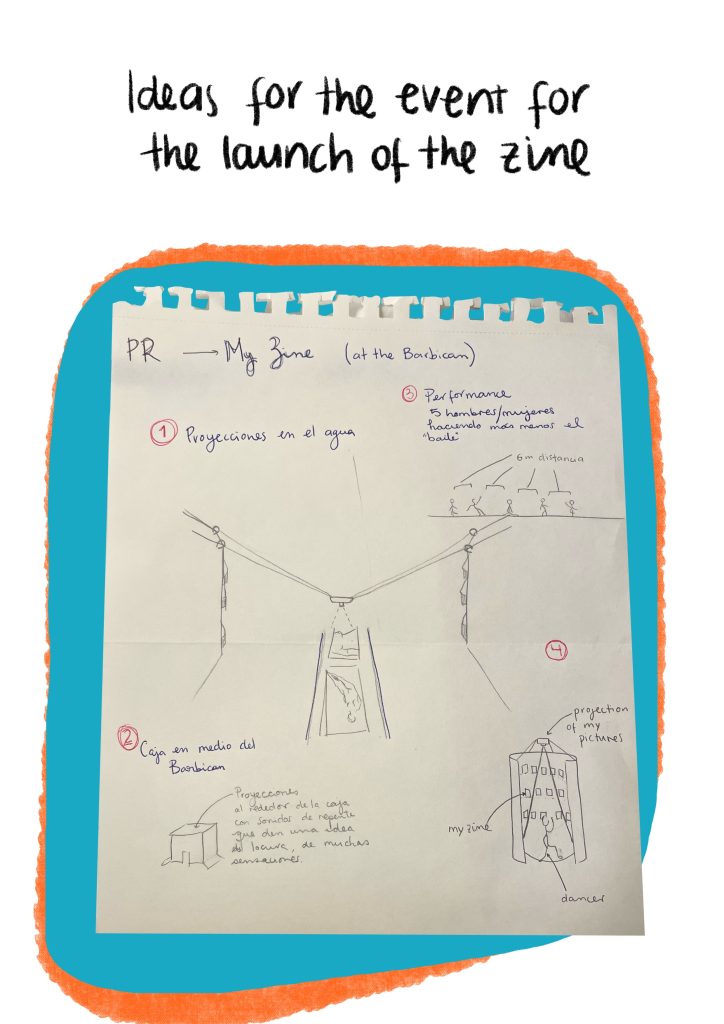 Ideas for the event for
the launch of the zine
PR → My Zine (at the Barbican)
① Proyecciones en el agua
③ Performance
5 hombres/mujeres
haciendo más menos el
"baile"
6m distancia
② Caja en medio del
Barbican
Proyecciones
al rededor de la caja
con sonidos de repente
que den una idea
de locura, de muchas
sensaciones.
④
projection
of my
pictures
my zine
dancer